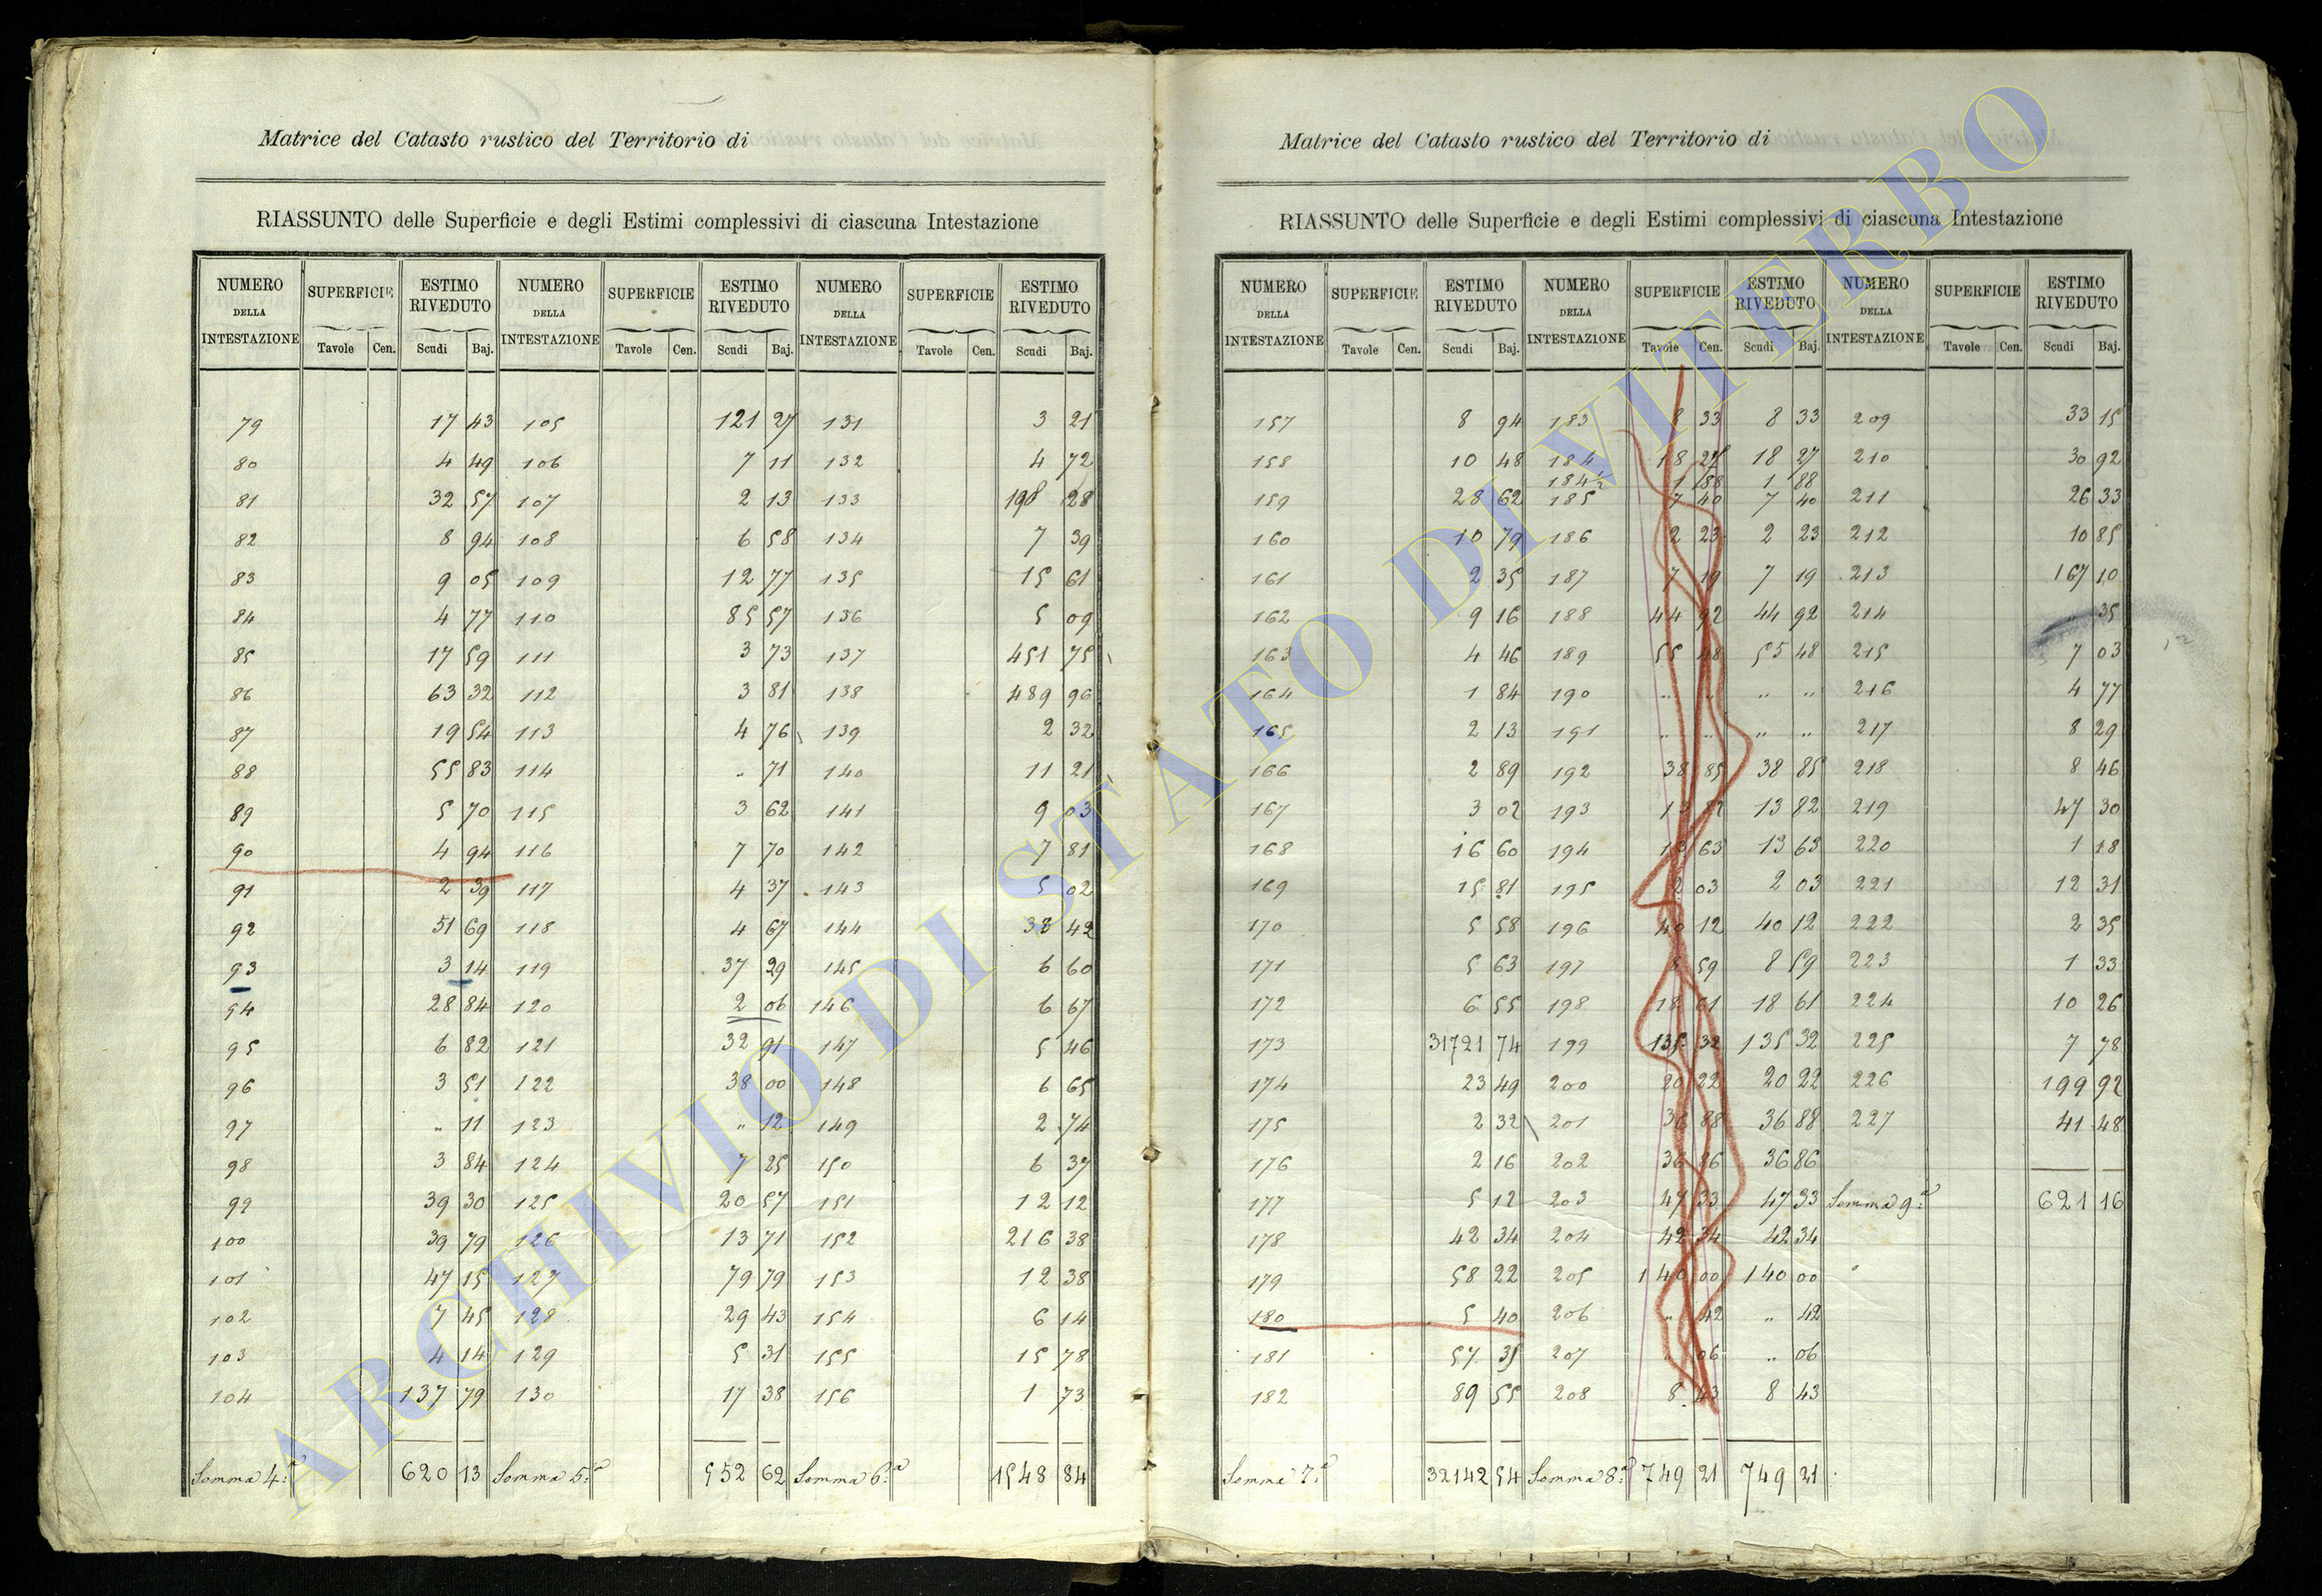 Matrice del Catasto rustico del Territorio di
RIASSUNTO delle Superficie e degli Estimi complessivi di ciascuna Intestazione
NUMERO DELLA INTESTAZIONE SUPERFICIE ESTIMO RIVEDUTO NUMERO DELLA INTESTAZIONE SUPERFICIE ESTIMO RIVEDUTO NUMERO DELLA INTESTAZIONE SUPERFICIE ESTIMO RIVEDUTO
Tavole Cen. Scudi Baj. Tavole Cen. Scudi Baj. Tavole Cen. Scudi Baj.
79 17 43 105 121 27 131 3 21
80 4 49 106 7 11 132 4 72
81 32 57 107 2 13 133 198 28
82 8 94 108 6 58 134 7 39
83 9 05 109 12 77 135 15 61
84 4 77 110 85 57 136 5 09
85 17 59 111 3 73 137 451 75
86 63 32 112 3 81 138 489 96
87 19 54 113 4 76 139 2 32
88 55 83 114 „ 71 140 11 21
89 5 70 115 3 62 141 9 03
90 4 94 116 7 70 142 7 81
91 2 39 117 4 37 143 5 02
92 51 69 118 4 67 144 38 42
93 3 14 119 37 29 145 6 60
94 28 84 120 2 06 146 6 67
95 6 82 121 32 91 147 5 46
96 3 51 122 38 00 148 6 65
97 „ 11 123 „ 12 149 2 74
98 3 84 124 7 25 150 6 37
99 39 30 125 20 57 151 12 12
100 39 79 126 13 71 152 216 38
101 47 15 127 79 79 153 12 38
102 7 45 128 29 43 154 6 14
103 4 14 129 5 31 155 15 78
104 137 79 130 17 38 156 1 73
Somma 4.a 620 13 Somma 5.a 552 62 Somma 6.a 1548 84
Matrice del Catasto rustico del Territorio di
RIASSUNTO delle Superficie e degli Estimi complessivi di ciascuna Intestazione
NUMERO DELLA INTESTAZIONE SUPERFICIE ESTIMO RIVEDUTO NUMERO DELLA INTESTAZIONE SUPERFICIE ESTIMO RIVEDUTO NUMERO DELLA INTESTAZIONE SUPERFICIE ESTIMO RIVEDUTO
Tavole Cen. Scudi Baj. Tavole Cen. Scudi Baj. Tavole Cen. Scudi Baj.
157 8 94 183 8 33 8 33 209 33 15
158 10 48 184 18 27 18 27 210 30 92
184½ 1 88 1 88
159 28 62 185 7 40 7 40 211 26 33
160 10 79 186 2 23 2 23 212 10 85
161 2 35 187 7 19 7 19 213 167 10
162 9 16 188 44 92 44 92 214 „ 35
163 4 46 189 55 48 55 48 215 7 03
164 1 84 190 „ „ „ „ 216 4 77
165 2 13 191 „ „ „ „ 217 8 29
166 2 89 192 38 85 38 85 218 8 46
167 3 02 193 13 82 13 82 219 47 30
168 16 60 194 13 63 13 63 220 1 18
169 15 81 195 2 03 2 03 221 12 31
170 5 58 196 40 12 40 12 222 2 35
171 5 63 197 8 59 8 59 223 1 33
172 6 55 198 18 61 18 61 224 10 26
173 31721 74 199 135 32 135 32 225 7 78
174 23 49 200 20 22 20 22 226 199 92
175 2 32 201 36 88 36 88 227 41 48
176 2 16 202 36 86 36 86
177 5 12 203 47 33 47 33 Somma 9.a 621 16
178 42 34 204 42 34 42 34
179 58 22 205 140 00 140 00
180 5 40 206 „ 42 „ 42
181 57 35 207 „ 06 „ 06
182 89 55 208 8 43 8 43
Somma 7.a 32142 54 Somma 8.a 749 21 749 21
ARCHIVIO DI STATO DI VITERBO